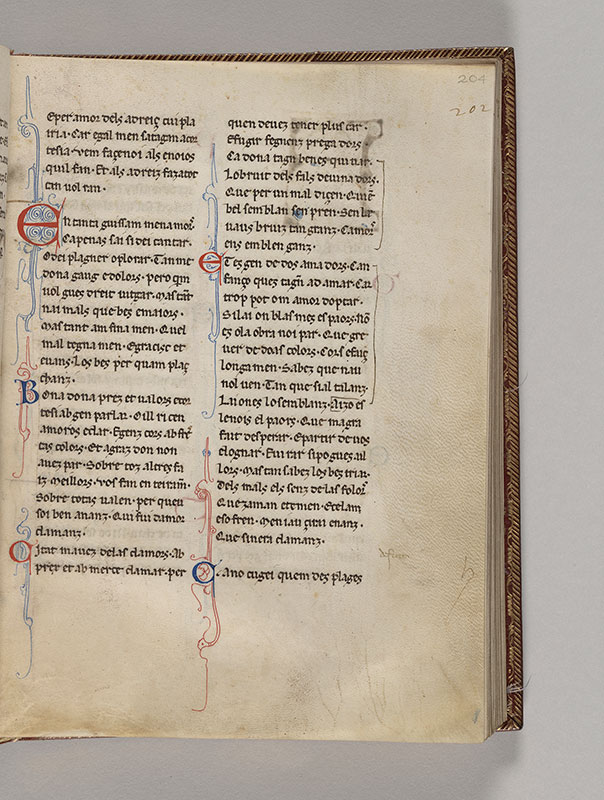 204
202
E per amor dels adreiç cui pla
iria. Car egal men satagan acor
tesia vem façenoi als enoios
quil fan. Et als adreiz fazator
can uol ran.
En tanta guissam menamorˢ
Capenas sai si dei cantar.
O dei plagner o plorar. Tan me
dona gaug e dolors. pero qin
uol gues dreit iutgar. Mas tāt
nai mals que bes
Mas tant am fina men. Quel
mal tegna men. E gracisc et
euans. Los bes per quam plaç
chanz.
Bona dona prez et ualors cor
tes ab gen parlar. Oill ri cen
amoros eclar. E genz cors ab frē
cas colors. Et agraz don non
auez par. Sobre totz altres fa
iz meillors. vos fan en
Sobre totas ualen. per queu
soi ben ananz. Qui fui damor
clamanz.
Citat mauez de las clamors. Ab
prezt et ab merce clamar. per
quen deuez tener plus car.
E fugir fegnenz prega dors.
Ca dona tagn ben es qui uar.
Lo bruit dels fals deuina dors.
Que per un mal diçen. Quē
bel semblan sen pren. Sen le
uaus bruiz tan granz. Camorˢ
ens emblen ganz.
E tes gen de dos ama dors. Can
fanço quez tagn ad amar. Car
trop pot om amor doptar.
Si lai on blasmes es paors. Nō
es ola obra noi par. Que gre
uer de doas colors. Cors efug
longa men. Sabez que nau
nol uen. Tan que sial talanz.
Lai ones lo semblanz. Aizo es
lenois el paors. Que magra
fait desperar. E partir de uos
elognar. Eu rar si pogues ail
lors. Mas tan sabez los bez triar.
Dels mals els senz de las folorˢ
Que zaman etemen. Et clam
eso fren. Men iau çira enanz.
Que siuen clamanz.
Cano cugei quem dez plages